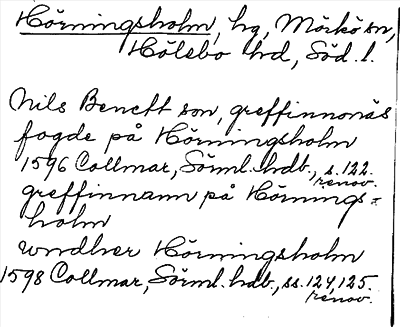 Hörningsholm, hg, Mörkö sn,
Hölebo hd, Söd. l.
Nils Benctt son, greffinnonäs
fogde på Hörningsholm
1596 Collmar, Sörml. hdb., s. 122.
renov.
greffinnann på Hörnings=
holm
wndher Hörningsholm
1598 Collmar, Sörml. hdb., ss. 124, 125.
renov.